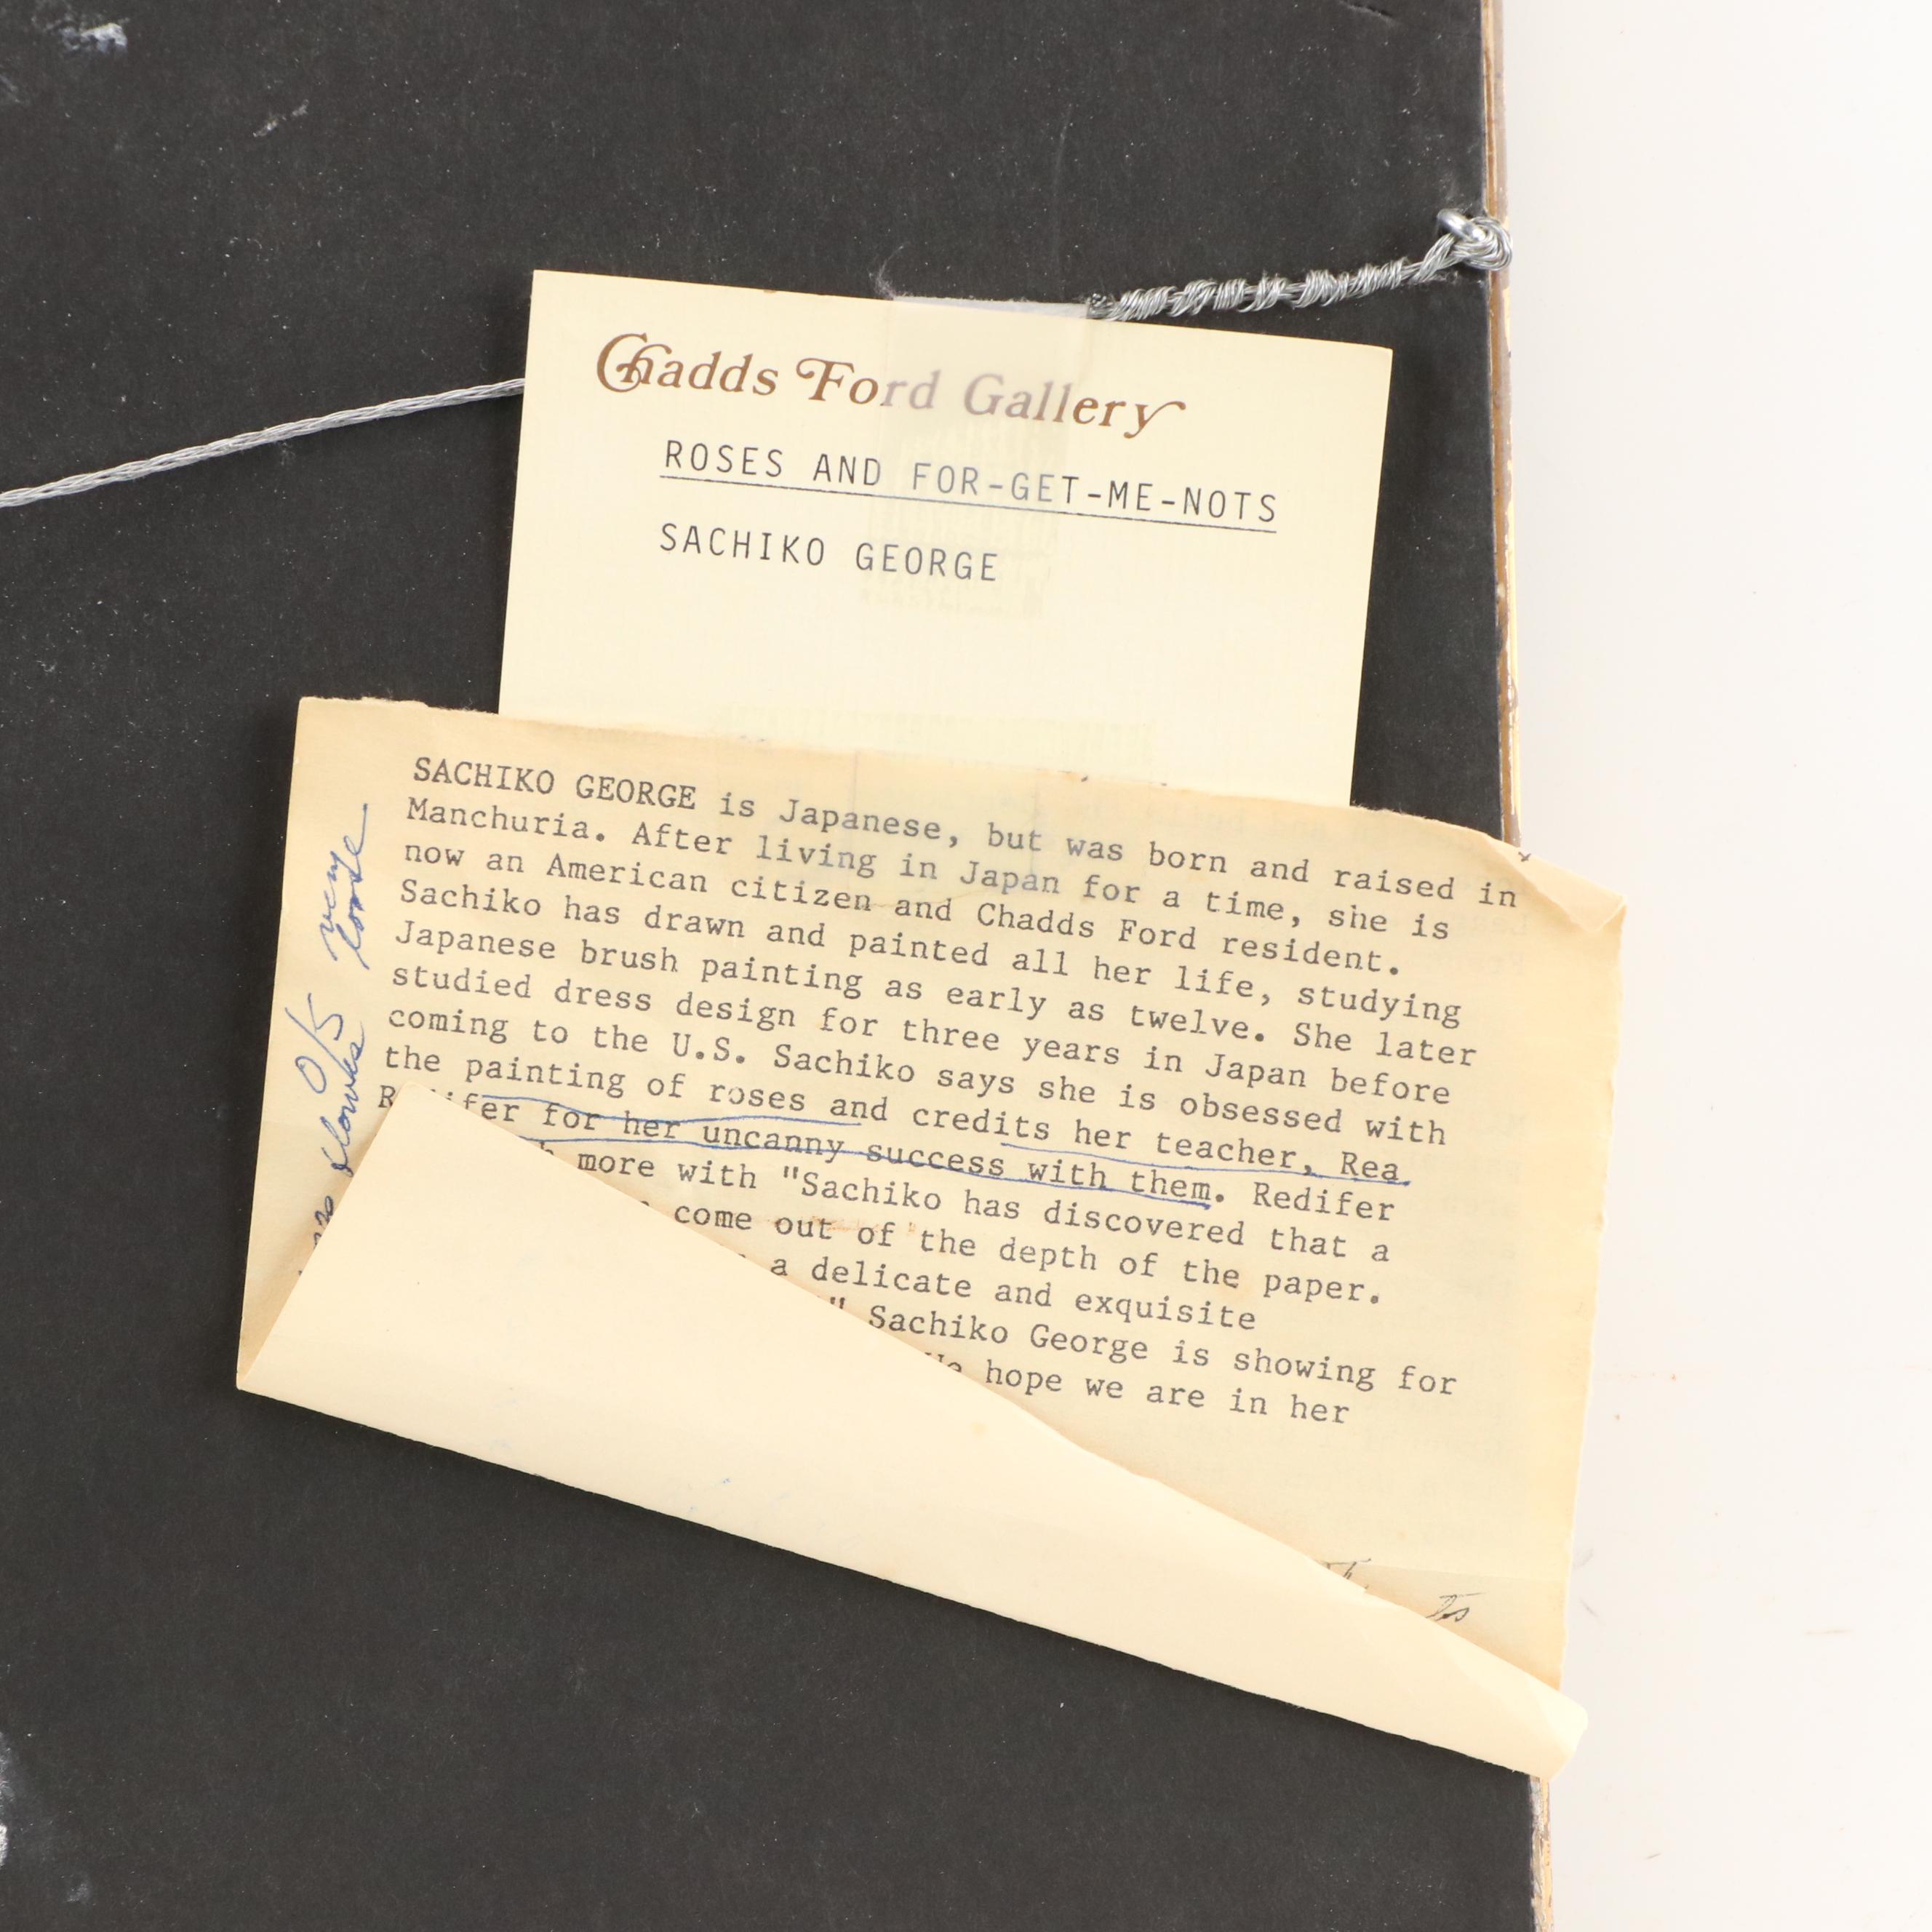 Chadds Ford Gallery
ROSES AND FOR-GET-ME-NOTS
SACHIKO GEORGE
SACHIKO GEORGE is Japanese, but was born and raised in
Manchuria. After living in Japan for a time, she is
now an American citizen and Chadds Ford resident.
Sachiko has drawn and painted all her life, studying
Japanese brush painting as early as twelve. She later
studied dress design for three years in Japan before
coming to the U.S. Sachiko says she is obsessed with
the painting of roses and credits her teacher, Rea
for her uncanny success with them. Redifer
more with "Sachiko has discovered that a
come out of the depth of the paper.
a delicate and exquisite
" Sachiko George is showing for
hope we are in her